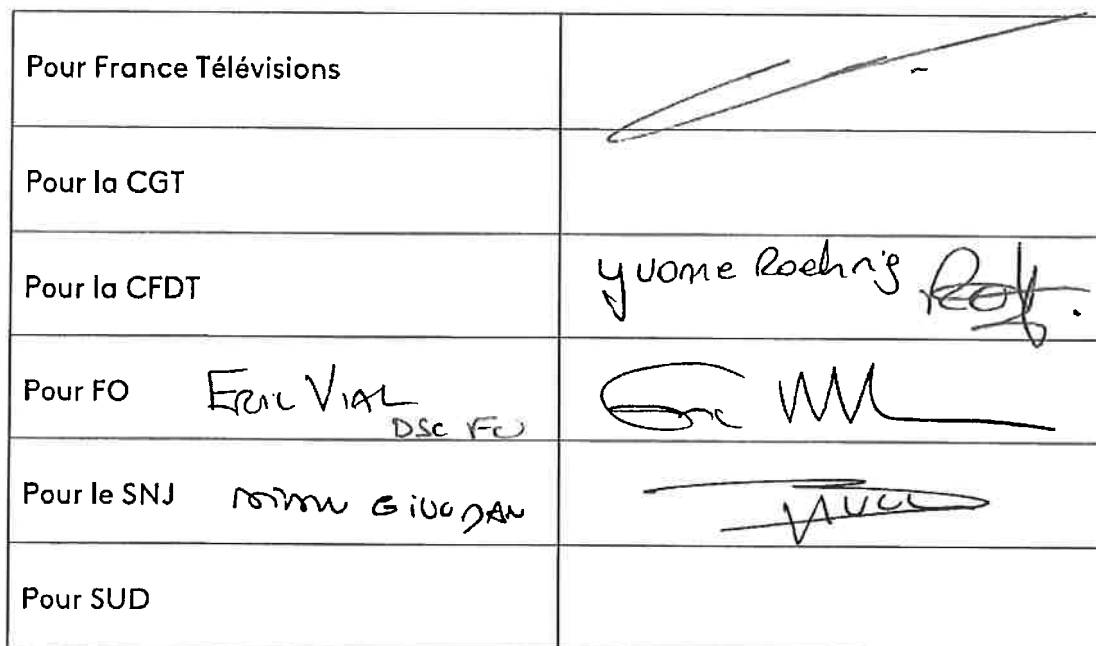 Pour France Télévisions
Pour la CGT
Pour la CFDT Yvonne Roehrig
Pour FO ERIC VIAL
DSC FO
Eric
Pour le SNJ
Pour SUD